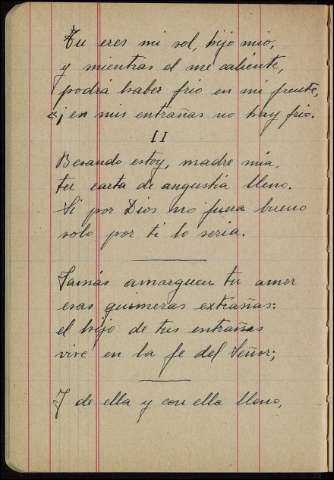 Tu eres mi sol, hijo mio,
y mientras el me caliente,
podrá haber frio en mi frente,
¡en mis entrañas no hay frio.
II
Besando estoy, madre mía,
tu carta de angustia lleno.
Si por Dios no fuera bueno
solo por ti lo seria.
Jamás amarguen tu amor
esas quimeras extrañas:
el hijo de tus entrañas
vive en la fe del Señor;
Y de ella y con ella lleno,